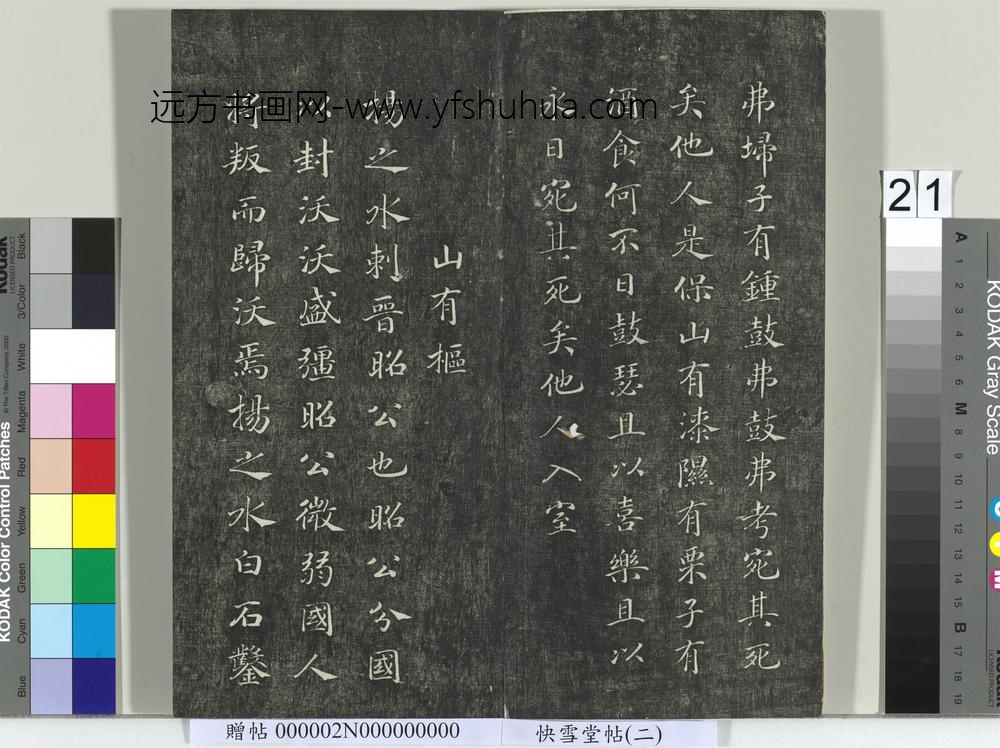 弗埽子有鍾鼓弗鼓弗考宛其死
矣他人是保山有漆隰有栗子有
酒食何不日鼓瑟且以喜樂且以
永日宛其死矣他人入室
山有樞
揚之水刺晉昭公也昭公分國
以封沃沃盛彊昭公微弱國人
將叛而歸沃焉揚之水白石鑿
远方书画网-www.yfshuhua.com
21
贈帖 000002N000000000
快雪堂帖(二)
Kodak
LICENSED PRODUCT
KODAK Color Control Patches
© The Tiffen Company, 2000
Black
3/Color
White
Magenta
Red
Yellow
Green
Cyan
Blue
KODAK Gray Scale
A 1 2 3 4 5 6 M 8 9 10 11 12 13 14 15 B 17 18 19
C
Y
M
Kodak
LICENSED PRODUCT